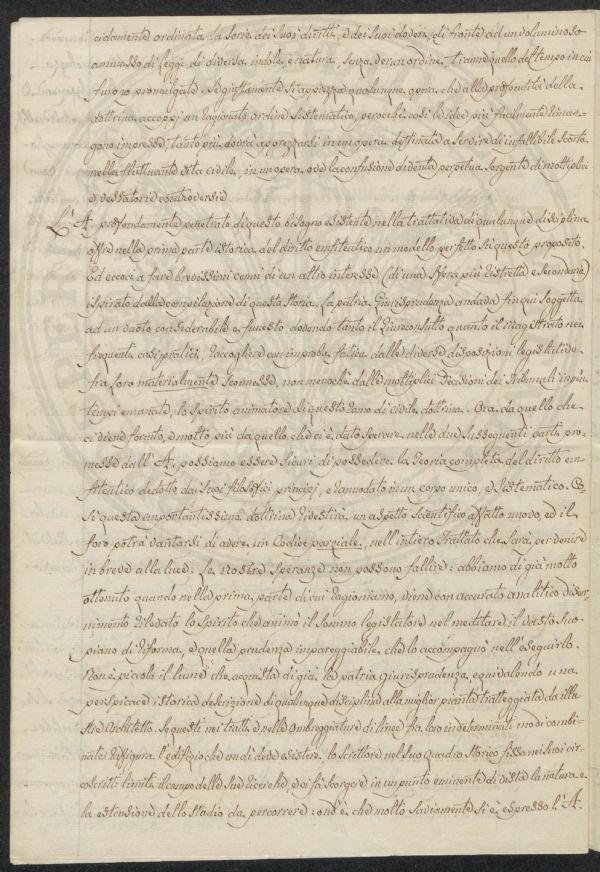 cidamente ordinata la serie dei suoi diritti, e dei suoi doveri, di fronte ad un voluminoso
ammasso di leggi di diversa indole, e natura, senza verun ordine, tranne quello del tempo in cui
furono promulgate. Se giustamente si apprezza qualunque opera, che alla profondità della
dottrina accoppj un ragionato ordine sistematico, perochè così le idee più facilmente riman-
gono impresse, tanto più dovrà apprezzarsi in un'opera destinata a servire di infallibile scorta
nella fluttuante vita civile, in un'opera ove la confusione diventa perpetua sorgente di moltiplici
e vessatorie controversie.
L'A. profondamente penetrato di questo bisogno esistente nella trattativa di qualunque disciplina
offre nella prima parte istorica del diritto enfiteutico un modello perfetto su questo proposito.
Ed eccoci a fare brevissimi cenni di un altro interesse (di una sfera più ristretta e secondaria)
ispirato dalla compilazione di questa storia. La patria Giurisprudenza andava fin qui soggetta
ad un vuoto considerabile e funesto, dovendo tanto il Giureconsulto quanto il Magistrato nei
frequenti casi pratici, raccogliere con improba fatica dalle diverse disposizioni legislative
fra loro materialmente sconnesse, non menochè dalle moltiplici Decisioni dei Tribunali in più
tempi emanate, lo spirito animatore di questo ramo di civile dottrina. Ora da quello che
ci viene fornito, e molto più da quello che ci è dato sperare nelle due susseguenti parti pro-
messe dall'A. possiamo essere sicuri di possedere la Teoria completa del diritto en-
fiteutico dedotto dai suoi filosofici principj, e rannodato in un corpo unico, e sistematico. Co-
sì questa importantissima dottrina rivestirà un aspetto scientifico affatto nuovo, ed il
foro potrà vantarsi di avere un Codice parziale, nell'intiero Trattato che sarà per venire
in breve alla luce. Le nostre speranze non possono fallire: abbiamo di già molto
ottenuto quando nella prima parte di cui ragioniamo, viene con accurato analitico discer-
nimento rilevato lo spirito che animò il sommo legislatore nel meditare il vasto suo
piano di riforma, e quella prudenza impareggiabile, che lo accompagnò nell'eseguirlo.
Non è picolo il lume che acquista di già la patria giurisprudenza, equivalendo una
perspicace istorica descrizione di qualunque disciplina alla miglior pianta tratteggiata da illu-
stre Architetto. Se questi nei tratti e nelle ombreggiature di linee fra loro indeterminati modi combi-
nate raffigura l'edifizio che un dì deve esistere, lo scrittore nel suo Quadro storico fissa nei suoi cir-
coscritti limiti il campo delle sue ricerche, e ci fa scorgere in un punto eminente di vista la natura e
la estensione dello stadio da percorrere: ond'è che molto saviamente si è espresso l'A.